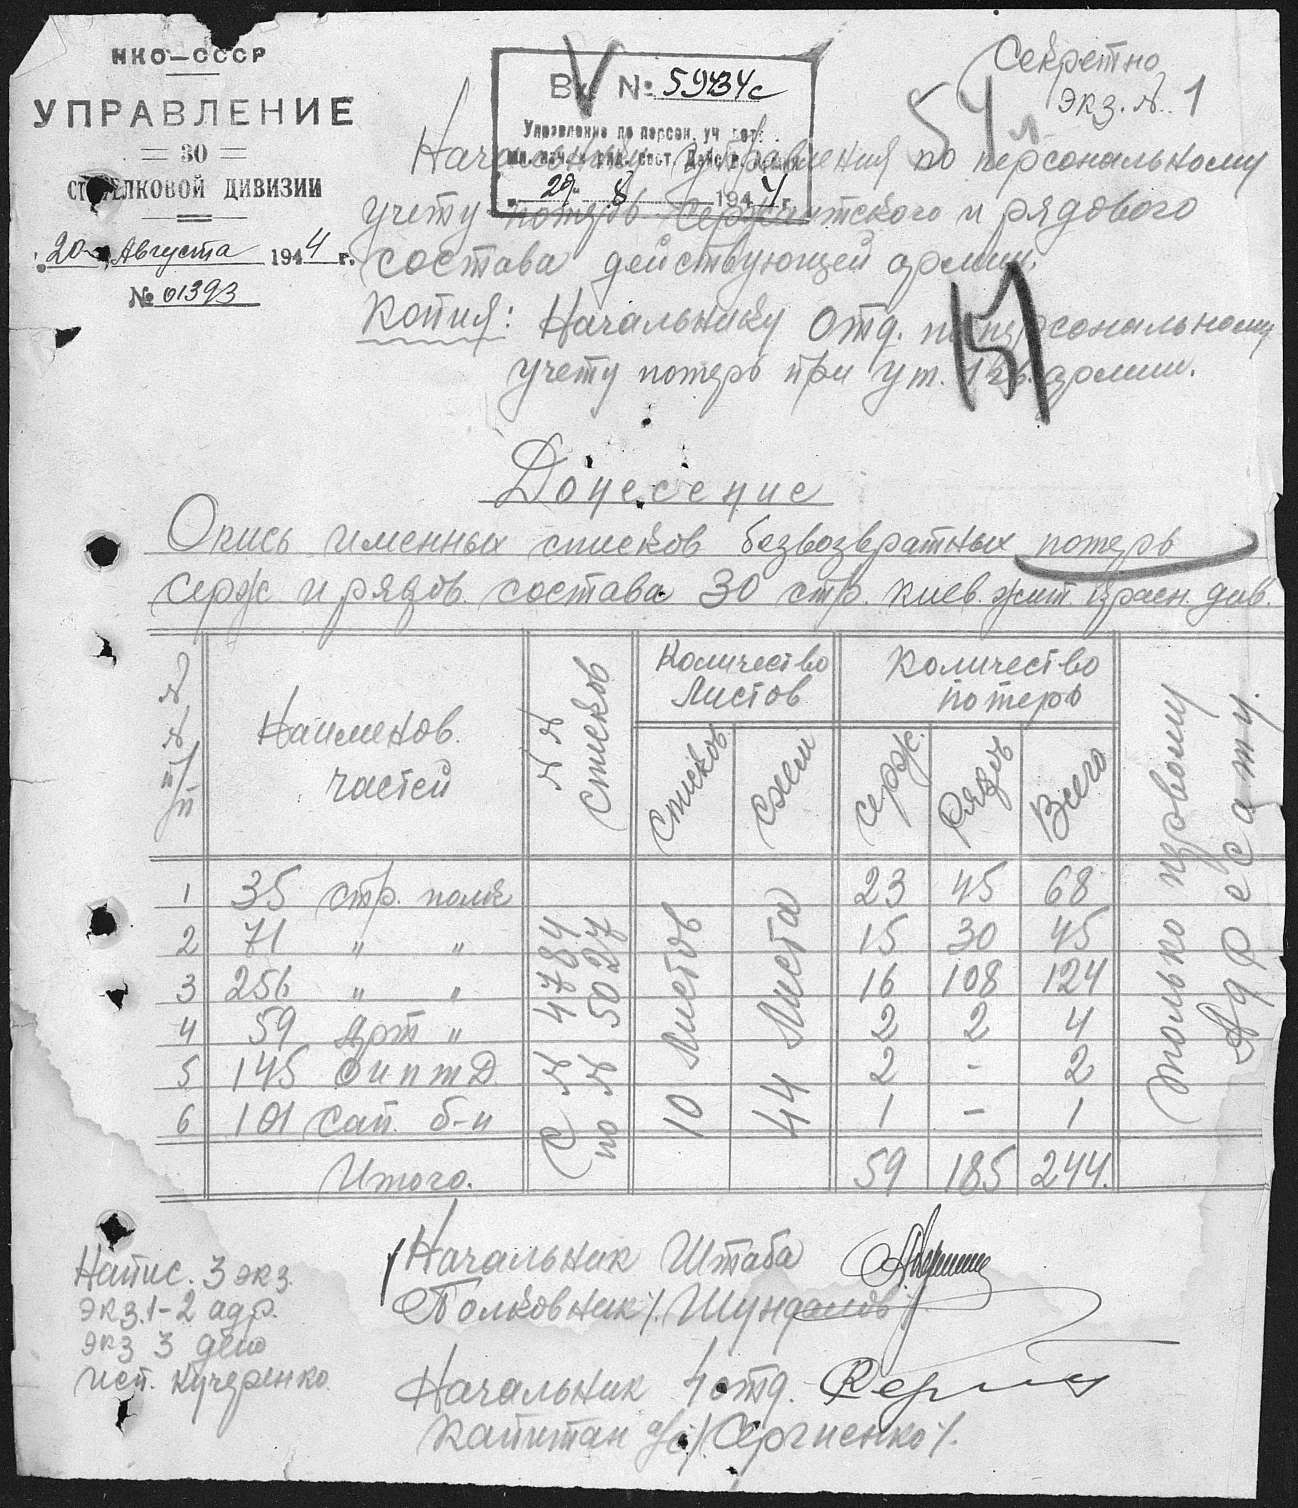 НКО—СССР
УПРАВЛЕНИЕ
30
СТРЕЛКОВОЙ ДИВИЗИИ
"20" Августа 1944 г.
№ 01393
Вх № 59434с
Управление по персон. уч. пот.
29 8 1944 г.
Секретно
Экз. № 1
54 л
Начальнику Управления по персональному
учету потерь сержантского и рядового
состава действующей армии.
Копия: Начальнику Отд. по персональному
учету потерь при ут. 1 гв. армии.
151
Донесение
Опись именных списков безвозвратных потерь
серж и рядов. состава 30 стр. киев. жит. красн. див.
№ № п/п
Наименов. частей
№ № списков
Количество Листов
Количество потерь
списков
схем
серж.
Рядов
Всего
1 35 стр. полк 23 45 68
2 71 " " 15 30 45
3 256 " " 16 108 124
4 59 Арт " 2 2 4
5 145 оиптД 2 - 2
6 101 сап. б-н 1 - 1
Итого. 59 185 244.
С № 4784
по № 5027
10 листов
44 Листа
только первому
Адресату.
Начальник Штаба
Полковник /. Шундалов /
Начальник 4 отд.
Капитан а/с /Сергиенко/.
Напис. 3 экз.
экз. 1-2 адр.
экз 3 дело
исп. Кучеренко